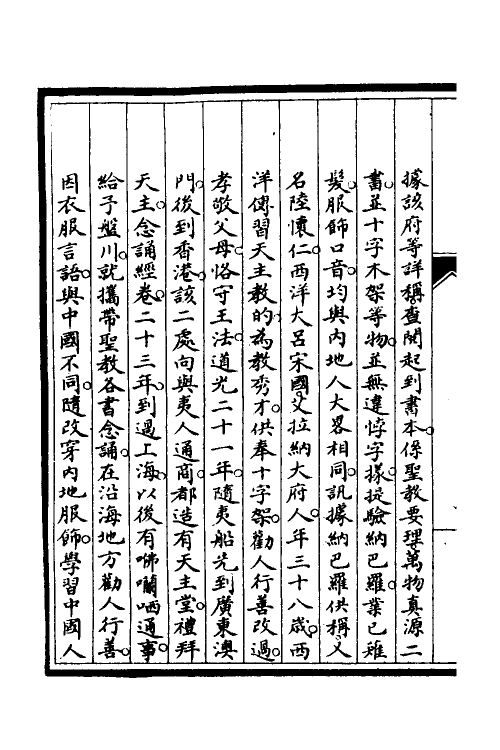 據該府等詳稱查閱起到書本。係聖教要理萬物真源二
書。並十字木架等物。並無違悖字㨾。提驗納巴羅。業已雉
髮。服飾口音。均與內地人大畧相同。訊據納巴羅供稱。又
名陸懷仁。西洋大呂宋國艾拉納大府人。年三十八歲。西
洋傳習天主教的。為教秀才。供奉十字架。勸人行善改過。
孝敬父母。恪守王法。道光二十一年。隨夷船先到廣東澳
門。後到香港。該二處向與夷人通商。都造有天主堂。禮拜
天主。念誦經卷。二十三年。到過上海。以後有咈囒哂通事。
給予盤川。就攜帶聖教各書念誦。在沿海地方勸人行善。
因衣服言語。與中國不同。隨改穿內地服飾。學習中國人